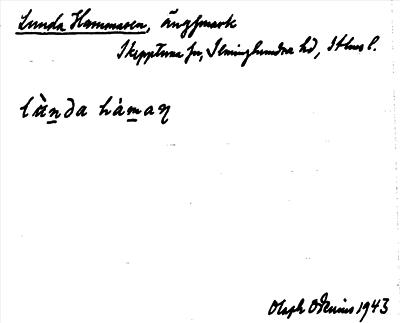 Lunda Hammaren, ängsmark
Skepptuna sn, Seminghundra hd, Sthms l.
lùnda hàmaɳ
Olaph Odenius 1943